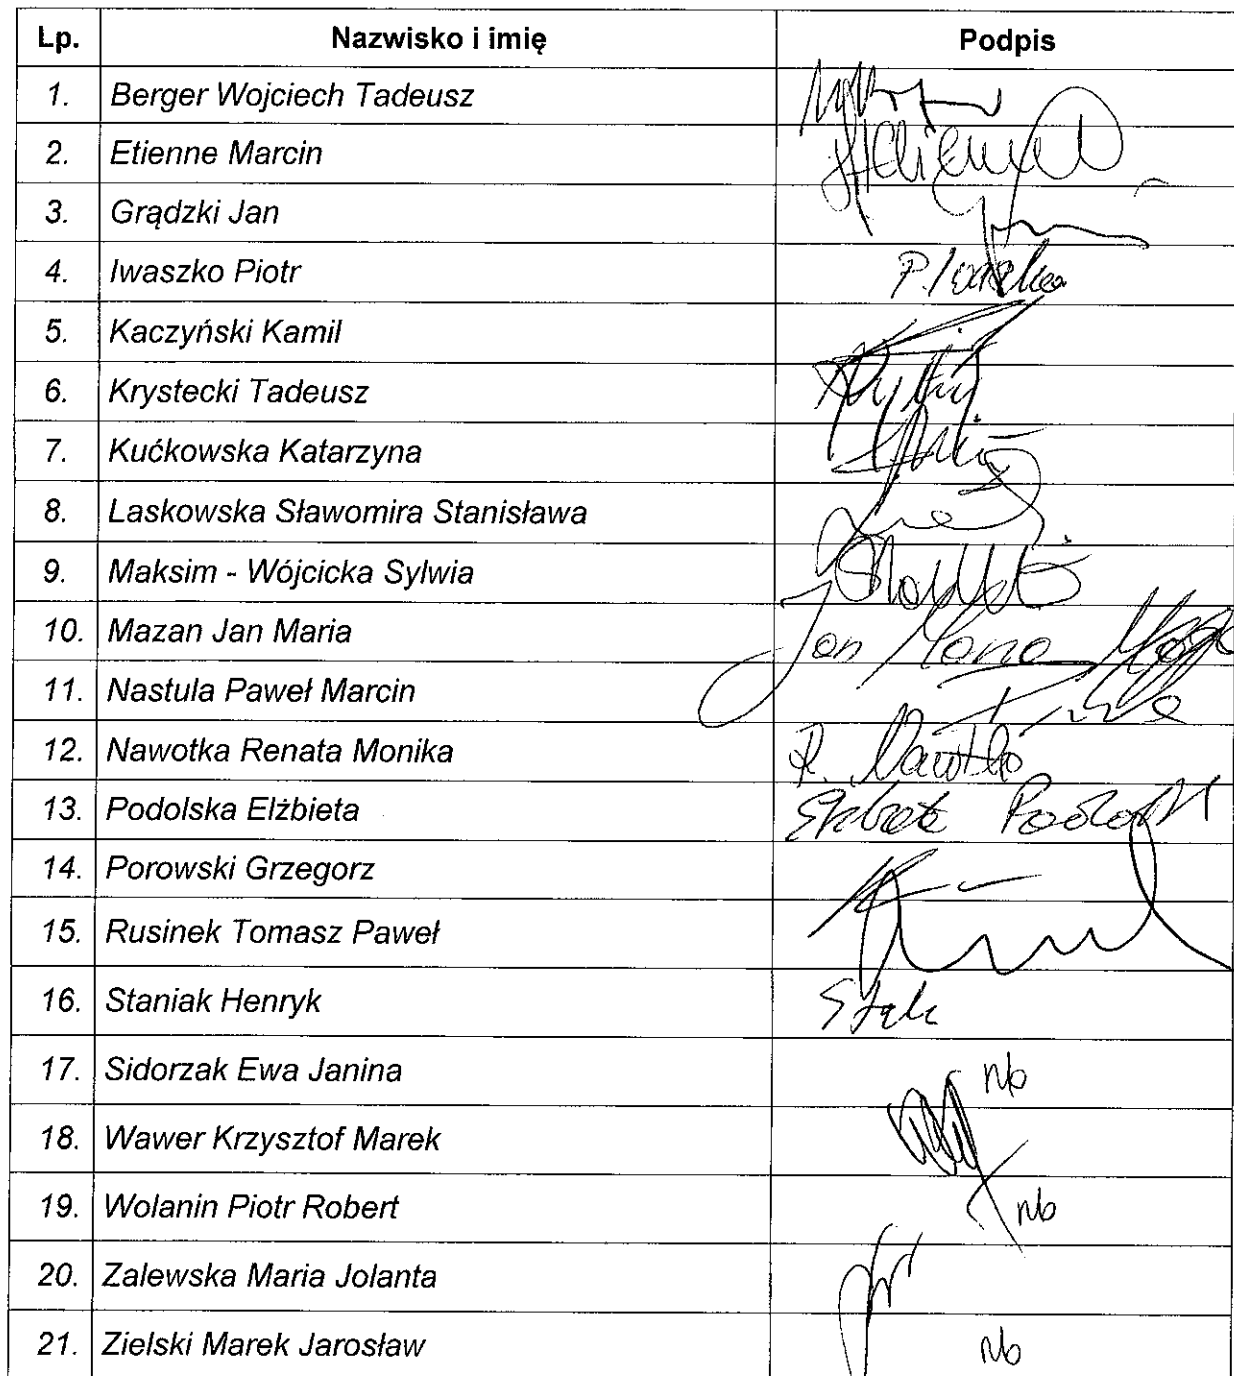 Lp. Nazwisko i imię Podpis
1. Berger Wojciech Tadeusz
2. Etienne Marcin
3. Grądzki Jan
4. Iwaszko Piotr P. Iwaszko
5. Kaczyński Kamil
6. Krystecki Tadeusz
7. Kućkowska Katarzyna
8. Laskowska Sławomira Stanisława
9. Maksim - Wójcicka Sylwia
10. Mazan Jan Maria Jan Maria
11. Nastula Paweł Marcin
12. Nawotka Renata Monika R. Nawotka
13. Podolska Elżbieta Elżbieta Podolska
14. Porowski Grzegorz
15. Rusinek Tomasz Paweł
16. Staniak Henryk
17. Sidorzak Ewa Janina nb
18. Wawer Krzysztof Marek
19. Wolanin Piotr Robert nb
20. Zalewska Maria Jolanta
21. Zielski Marek Jarosław nb